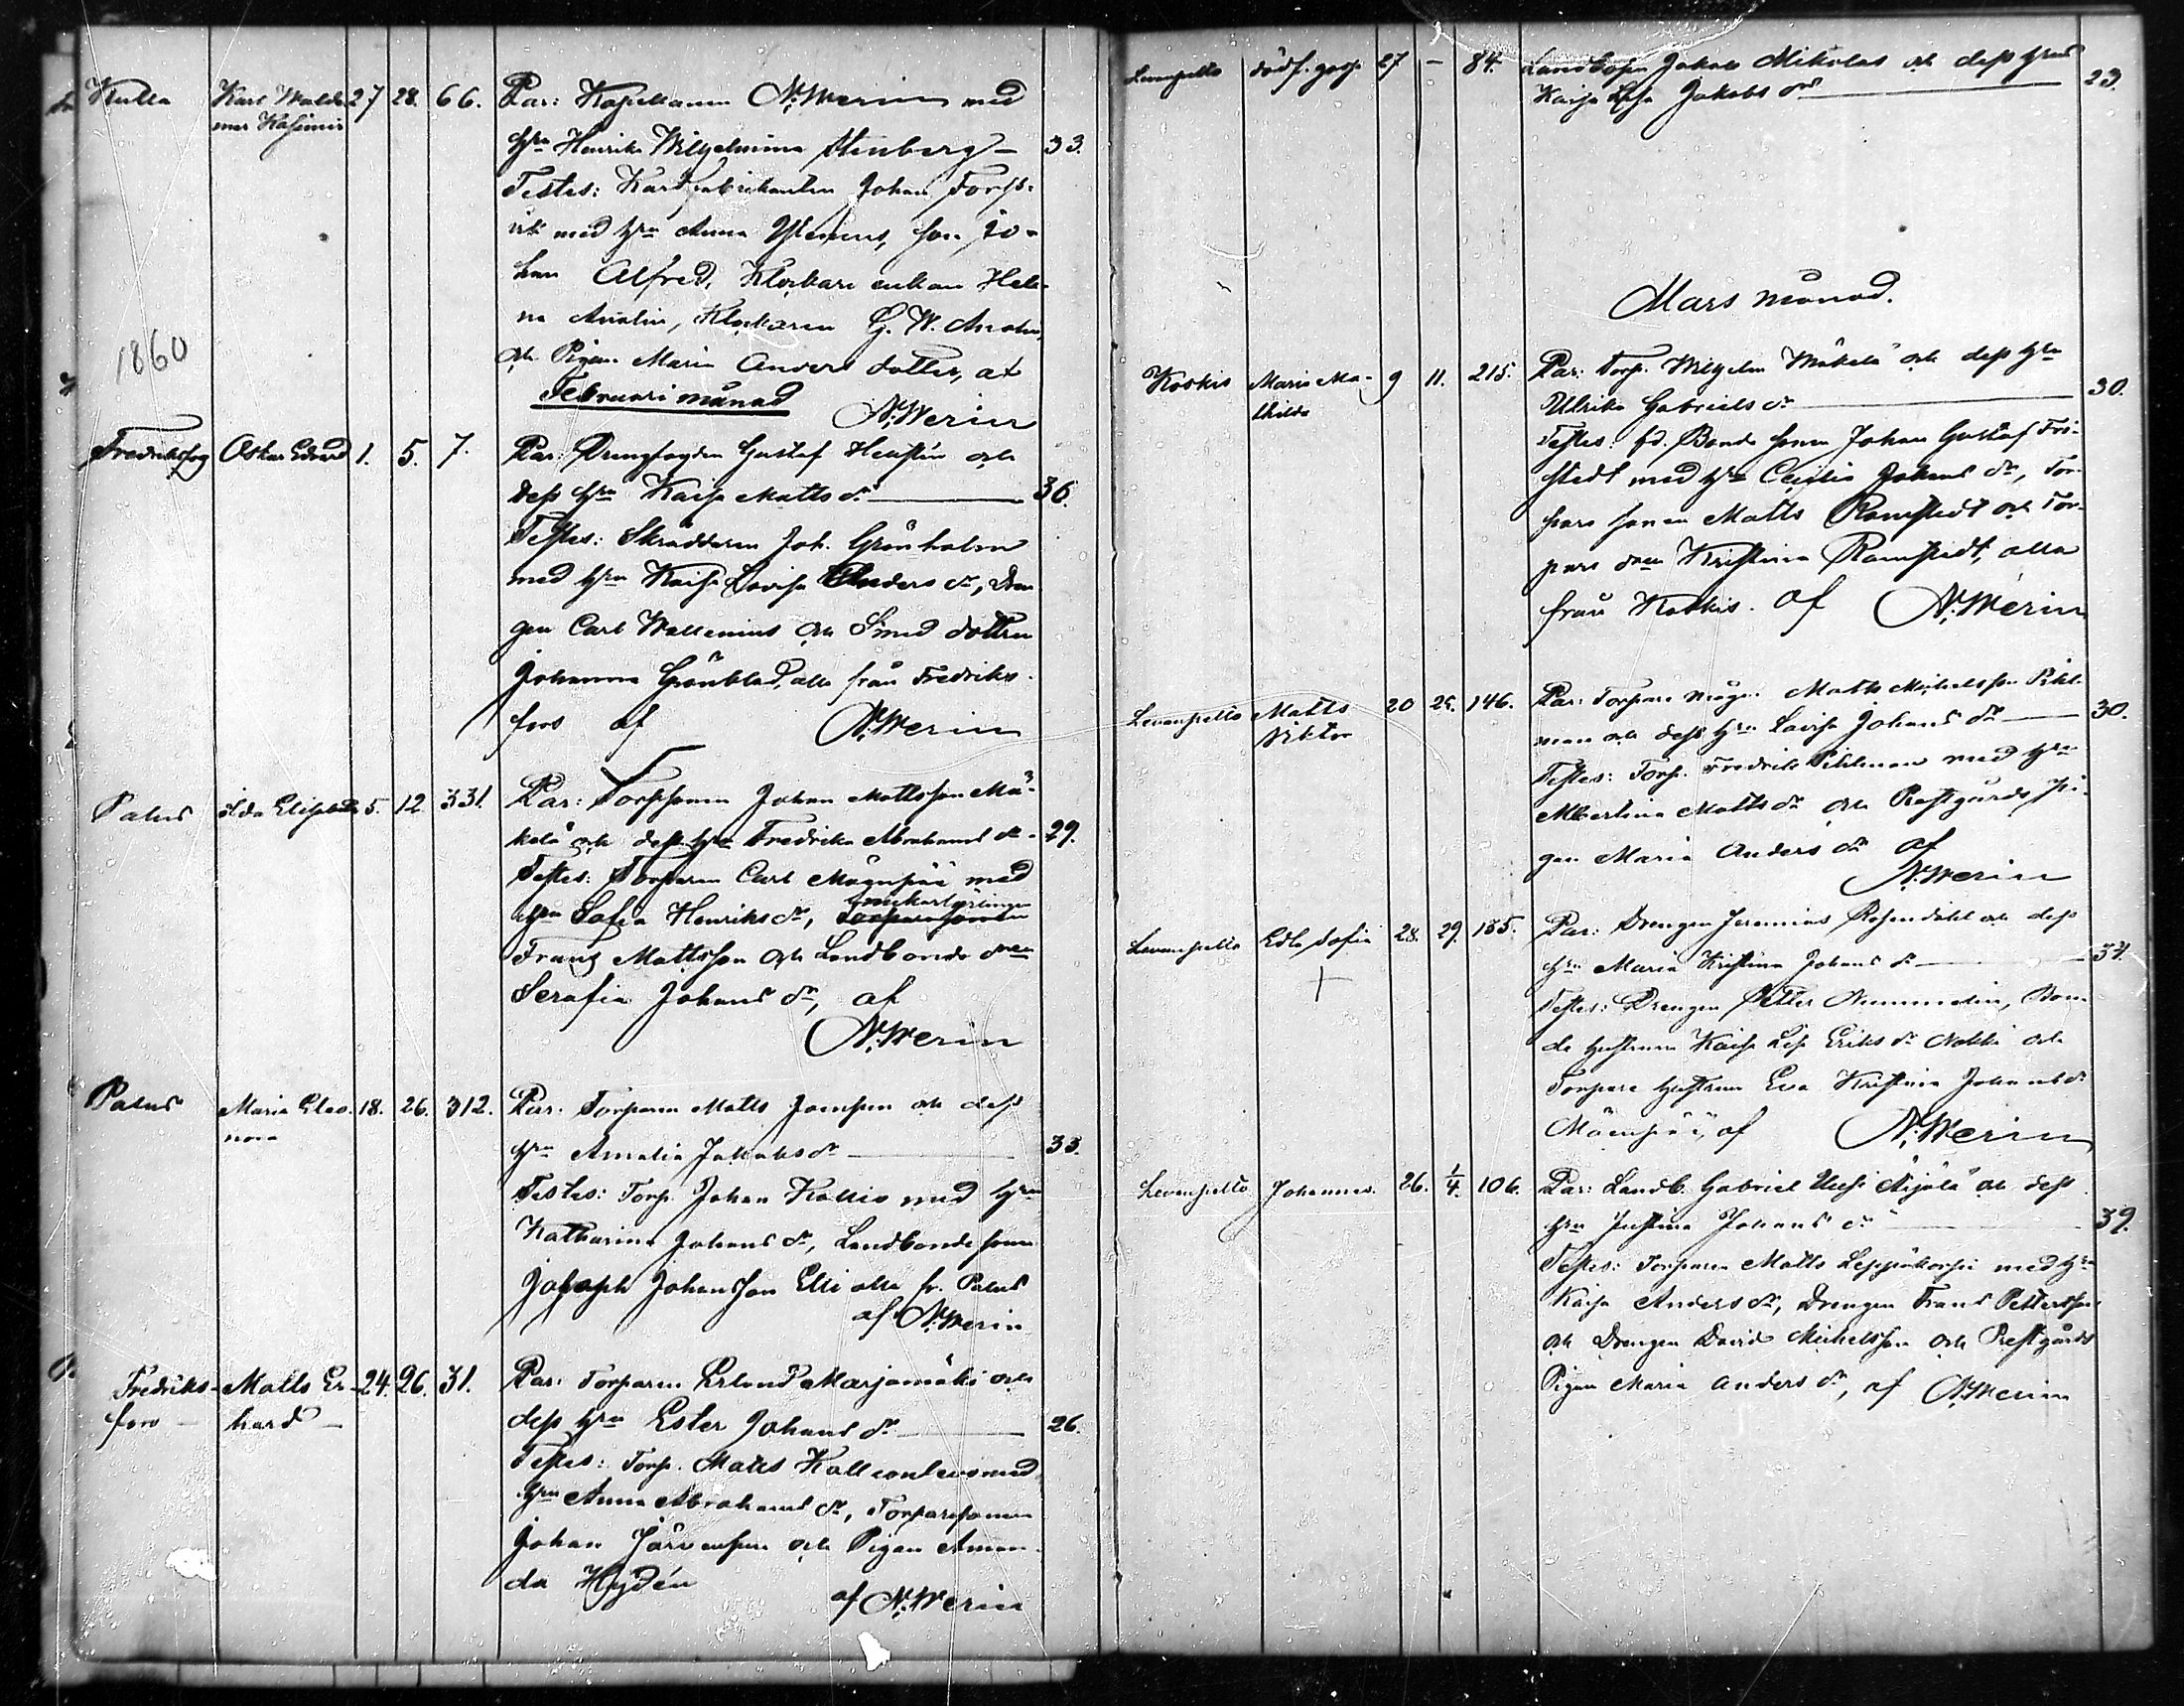 Kulla Karl Walde- 27 28. 66. Par: Kapellanen N. Merin med
mar Kasimir
Hru Henrika Wilhelmina Stenberg — 33.
Testes: Johan Forss-
med Hru Anna son Jo-
han Alfred, Klockare enkan Hele-
na Klockaren G. W.
1860
och Pigan Maria Anders dotter, af
Februari månad N. Merin
Fredriksfors Oskar Edvard 1. 5. 7. Par: Drengfogden Gustaf och
dess Hru Kaisa Matts dr — 36.
Testes: Skräddaren Joh. Grönholm
med Hru Kaisa Lovisa Anders dr, Dren
gen Carl Wallenius och Smed dottren
Johanna Grönblad, alla från Fredriks-
fors af N. Merin
Palus Ida Elisabeth 5. 12. 331. Par: Torpsonen Johan Mattsson Mä-
kelä och dess Hru Fredrika Abrahams dr - 29.
Testes: Torparen Carl Mäenpää med
Hru Sofia Henriks dr,
Frans Mattsson och Landbonde dren
Serafia Johans dr, af
N. Merin
Palus Maria Eleo- 18. 26. 312. Par: Torparen Matts och dess
nora
Hru Amalia Jakobs dr — 33.
Testes: Torp. Johan Kallio med Hru
Katharina Johans dr, Landbonde sonen
Joseph Johansson Elli alla fr. Palus
af N. Merin
Fredriks- Matts Er- 24. 26. 31. Par: Torparen Erland Marjamäki och
fors — hard —
dess Hru Ester Johans dr — 26.
Testes: Torp. Matts med
Hru Anna Abrahams dr, Torparesonen
Johan Järvenpää och Pigan Aman-
da Hydén af N. Merin
Levanpelto dödf. goss 27 — 84. Landbonden Jakob Mikolas och dess Hrus
Kaisa Lisa Jakobs dr — 23.
Mars månad.
Koskis Maria Ma- 9 11. 215. Par: Torp. Wilhelm Mäkelä och dess Hru
thilda
Ulrika Gabriels dr — 30.
Testes: fd. Bonde sonen Johan Gustaf Fri-
stedt med Hru Cecilia Johans dr, Tor-
pare sonen Matts Ramstedt och Tor-
pare dren Kristina Ramstedt, alla
från Koskis. af N. Merin
Levanpelto Matts 20 25. 146. Par: Torpare mågen Matts Michelsson Pihl-
Viktor
man och dess Hru Lovisa Johans dr — 30.
Testes: Torp. Fredrik Pihlman med Hru
Albertina Matts dr och Prestgårds Pi-
gan Maria Anders dr af
N. Merin
Levanpelto Edla Sofia 28. 29. 155. Par: Drengen Jeremias Rosendahl och dess
Hru Maria Kristina Johans dr — 34.
Testes: Drengen Petter Nummelin, Bon-
de hustrun Kaisa Lisa Eriks dr och
Torpare hustrun Eva Kristina Johans dr
Mäenpää, af N. Merin
Levanpelto Johannes. 26. 1/4. 106. Par: Landb. Gabriel Uusi Äijälä och dess
Hru Justina Johans dr — 39.
Testes: Torparen Matts Leppäkorpi med Hru
Kaisa Anders dr, Drengen Frans Pettersson
och Drengen David Michelsson och Prestgårds
Pigan Maria Anders dr, af N. Merin